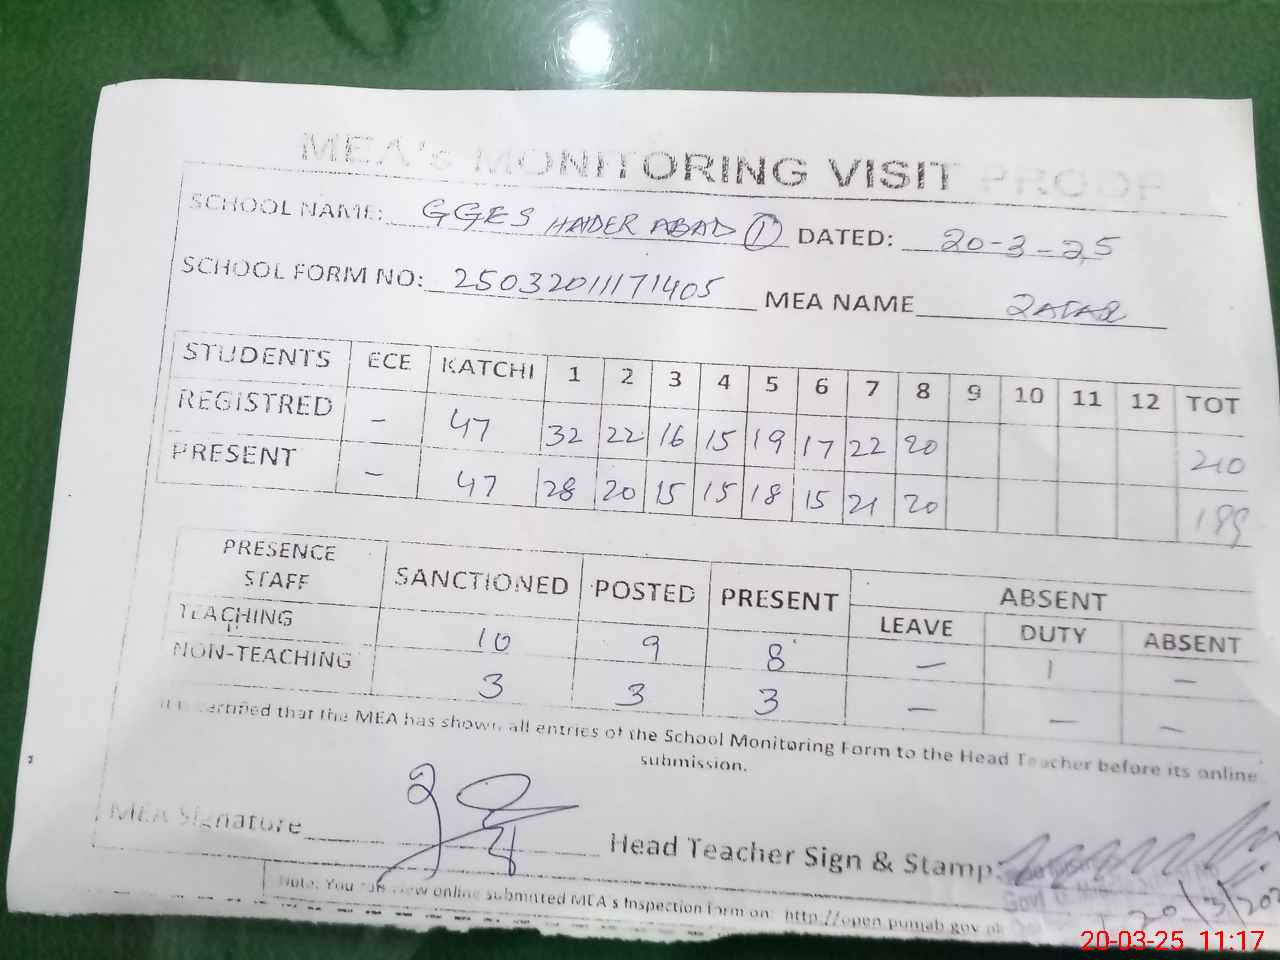 MEA's MONITORING VISIT PROOF
SCHOOL NAME: GGES HAIDER ABAD ① DATED: 20-3-25
SCHOOL FORM NO: 25032011171405 MEA NAME ZAFAR
STUDENTS ECE KATCHI 1 2 3 4 5 6 7 8 9 10 11 12 TOT
REGISTRED - 47 32 22 16 15 19 17 22 20 210
PRESENT - 47 28 20 15 15 18 15 21 20 199
PRESENCE STAFF SANCTIONED POSTED PRESENT ABSENT
LEAVE DUTY ABSENT
TEACHING 10 9 8 - 1 -
NON-TEACHING 3 3 3 - - -
It is certified that the MEA has shown all entries of the School Monitoring Form to the Head Teacher before its online
submission.
MEA Signature Head Teacher Sign & Stamp:
Govt
20/3/202
Note: You can view online submitted MEA's Inspection form on: http://open.punjab.gov.pk
20-03-25 11:17